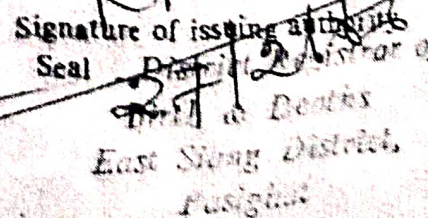 Signature of issuing authority
Seal District Registrar of
Birth & Deaths
East Siang District,
Pasighat